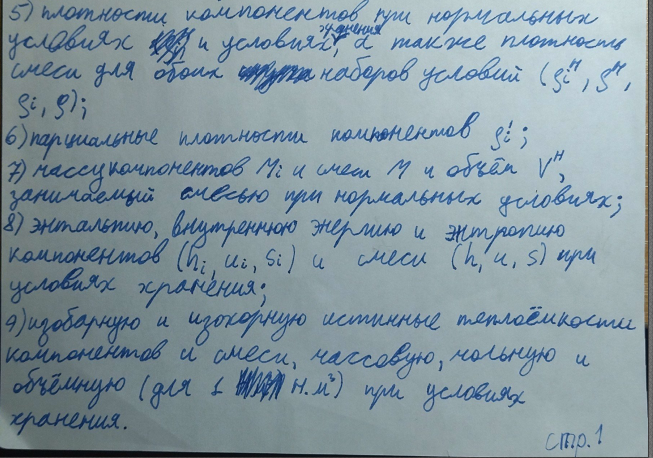 5) плотности компонентов при нормальных
условиях и условиях хранения, а также плотность
смеси для обоих наборов условий (ρiᴴ, ρᴴ,
ρi, ρ);
6) парциальные плотности компонентов ρi';
7) массу компонентов Mi и смеси M и объём Vᴴ,
занимаемый смесью при нормальных условиях;
8) энтальпию, внутреннюю энергию и энтропию
компонентов (hi, ui, si) и смеси (h, u, s) при
условиях хранения;
9) изобарную и изохорную истинные теплоёмкости
компонентов и смеси, массовую, мольную и
объёмную (для 1 н.м³) при условиях
хранения.
стр. 1